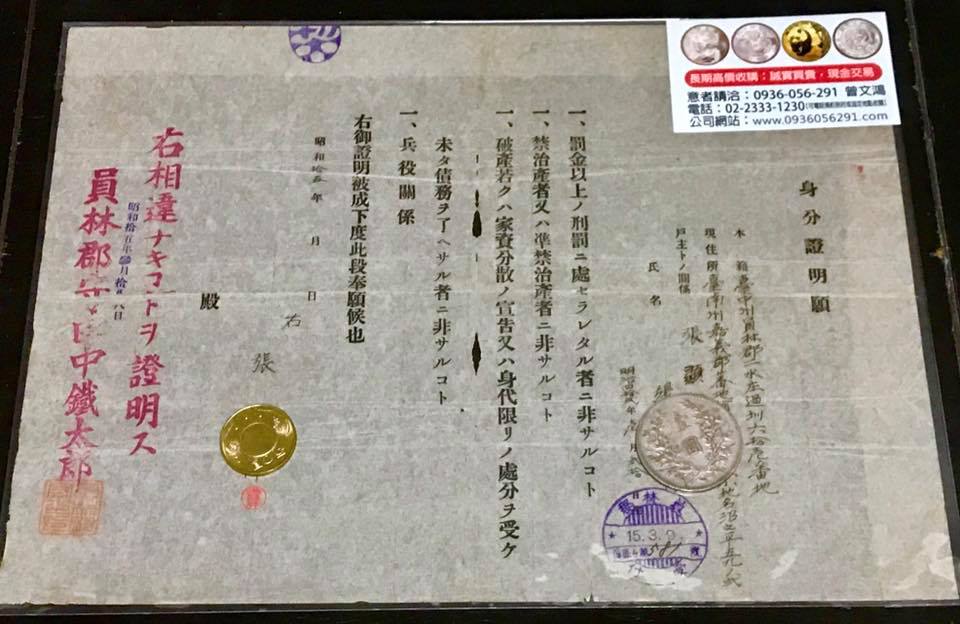 長期高價收購：誠實買賣，現金交易
意者請洽：0936-056-291 曾文鴻
電話：02-2333-1230
公司網站：www.0936056291.com
身分證明願
本籍臺中州員林郡二水庄過圳六拾
現住所臺南州嘉義郡番地
戶主トノ關係
氏名 張
明治
一、罰金以上ノ刑罰ニ處セラレタル者ニ非サルコト
一、禁治產者又ハ準禁治產者ニ非サルコト
一、破產若クハ家資分散ノ宣告又ハ身代限リノ處分ヲ受ケ
未タ債務ヲ了ヘサル者ニ非サルコト
一、兵役關係
右御證明被成下度此段奉願候也
昭和拾五年 月 日
右 張
殿
右相違ナキコトヲ證明ス
昭和拾五年 月拾 八日
員林郡守田中鐵太郎
員林
15.3.9